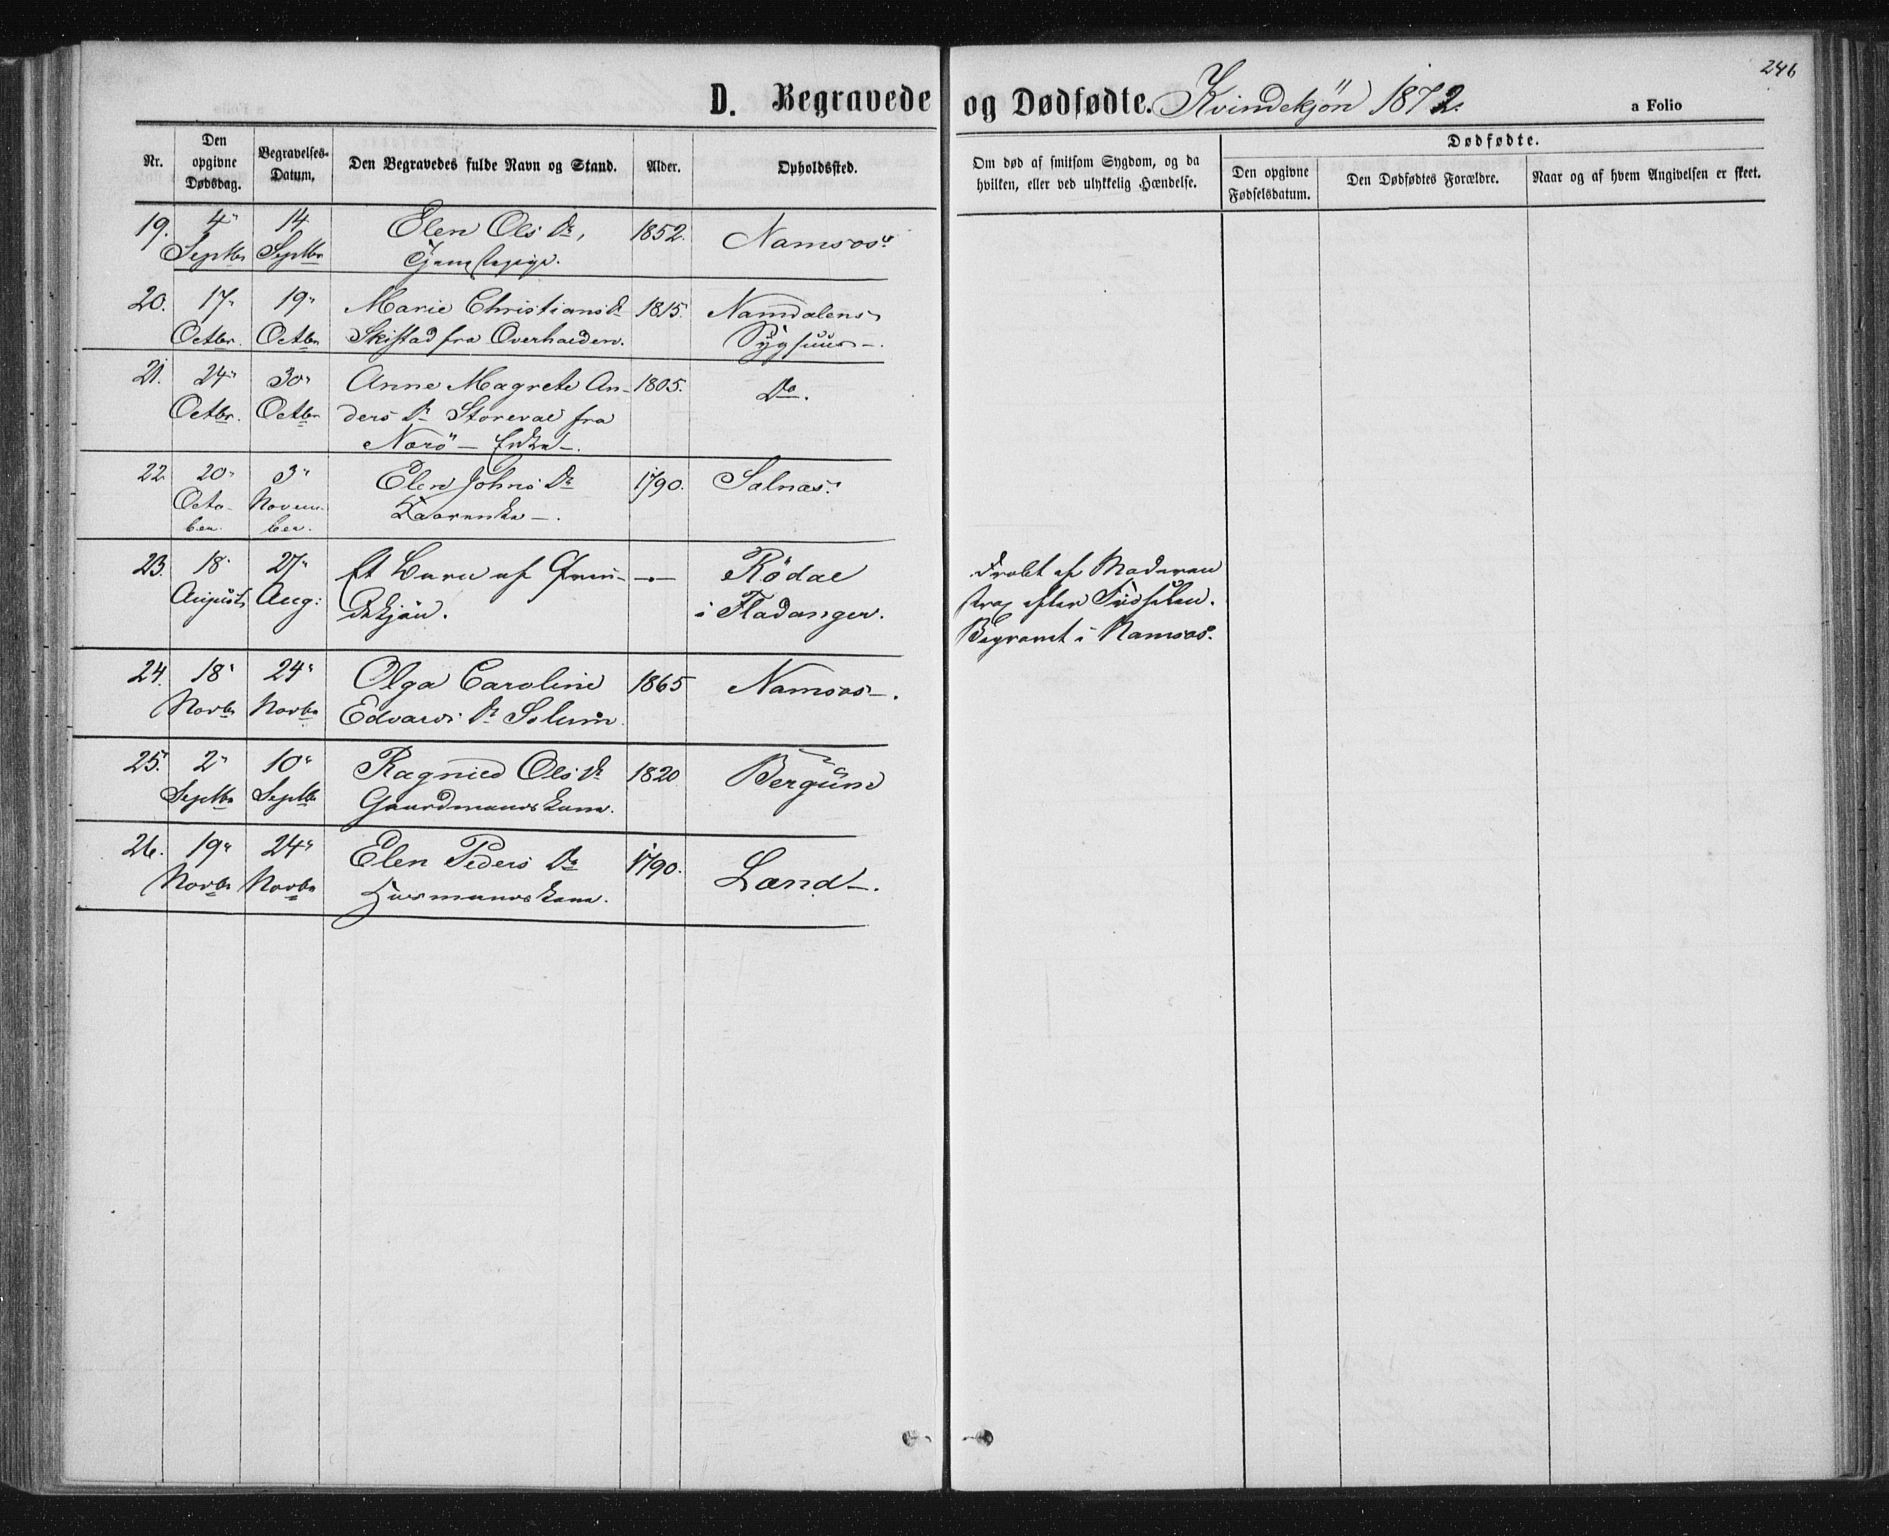 246
D. Begravede og Dødfødte. Kvindekjön 1872. a Folio
Nr. Den opgivne Dødsdag. Begravelses-Datum. Den Begravedes fulde Navn og Stand. Alder. Opholdssted. Om død af smitsom Sygdom, og da hvilken, eller ved ulykkelig Hændelse. Dødfødte.
Den opgivne Fødselsdatum. Den Dødfødtes Forældre. Naar og af hvem Angivelsen er skeet.
19. 4" 14 Elen Ols Dr, 1852. Namsos.
Septbr Septbr Tjenestepige.
20. 17" 19" Marie Christians Dr 1815. Namdalens
Octbr. Octbr Skistad fra Overhalden. Sygehuus.
21. 24" 30" Anne Magrete An- 1805. Do.
Octbr. Octbr ders Dr Storeval fra
Nærö - Enke.
22. 20" 3" Elen Johns Dr 1790. Salnæs.
Octo- Novem-
ber. ber.
23. 18. 27" Et Barn af Qvin- - Rödal Dræbt af Moderen
August Aug: dekjön. i Fladanger. strax efter Födselen.
Begravet i Namsos.
24. 18" 24" Olga Caroline 1865 Namsos.
Novbr Novbr Edvards Dr Solum.
25. 2" 10" Ragnild Ols Dr 1820 Bergum
Septbr Septbr Gaardmandskone.
26. 19" 24" Elen Peders Dr 1790. Land.
Novbr Novbr Husmandskone.